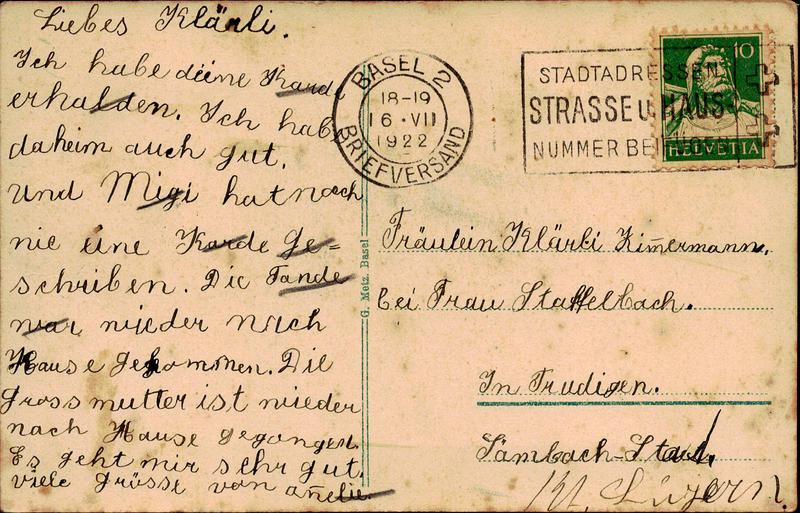 Liebes Klärli.
Ich habe deine Karde
erhalden. Ich hab
daheim auch gut.
Und Migi hat noch
nie eine Karde ge=
schriben. Die Tande
war wieder nach
Hause gekommen. Die
Grossmutter ist wieder
nach Hause gegangen.
Es geht mir sehr gut.
viele grüsse von
BASEL 2
18-19
16.VII
1922
BRIEFVERSAND
STADTADRESSEN
STRASSE u. HAUS-
NUMMER BEI
10
HELVETIA
G. Metz, Basel
Fräulein Klärli Zimermann.
bei Frau Staffelbach.
In Trudigen.
Sämbach-Stad
Kt. Luzern.